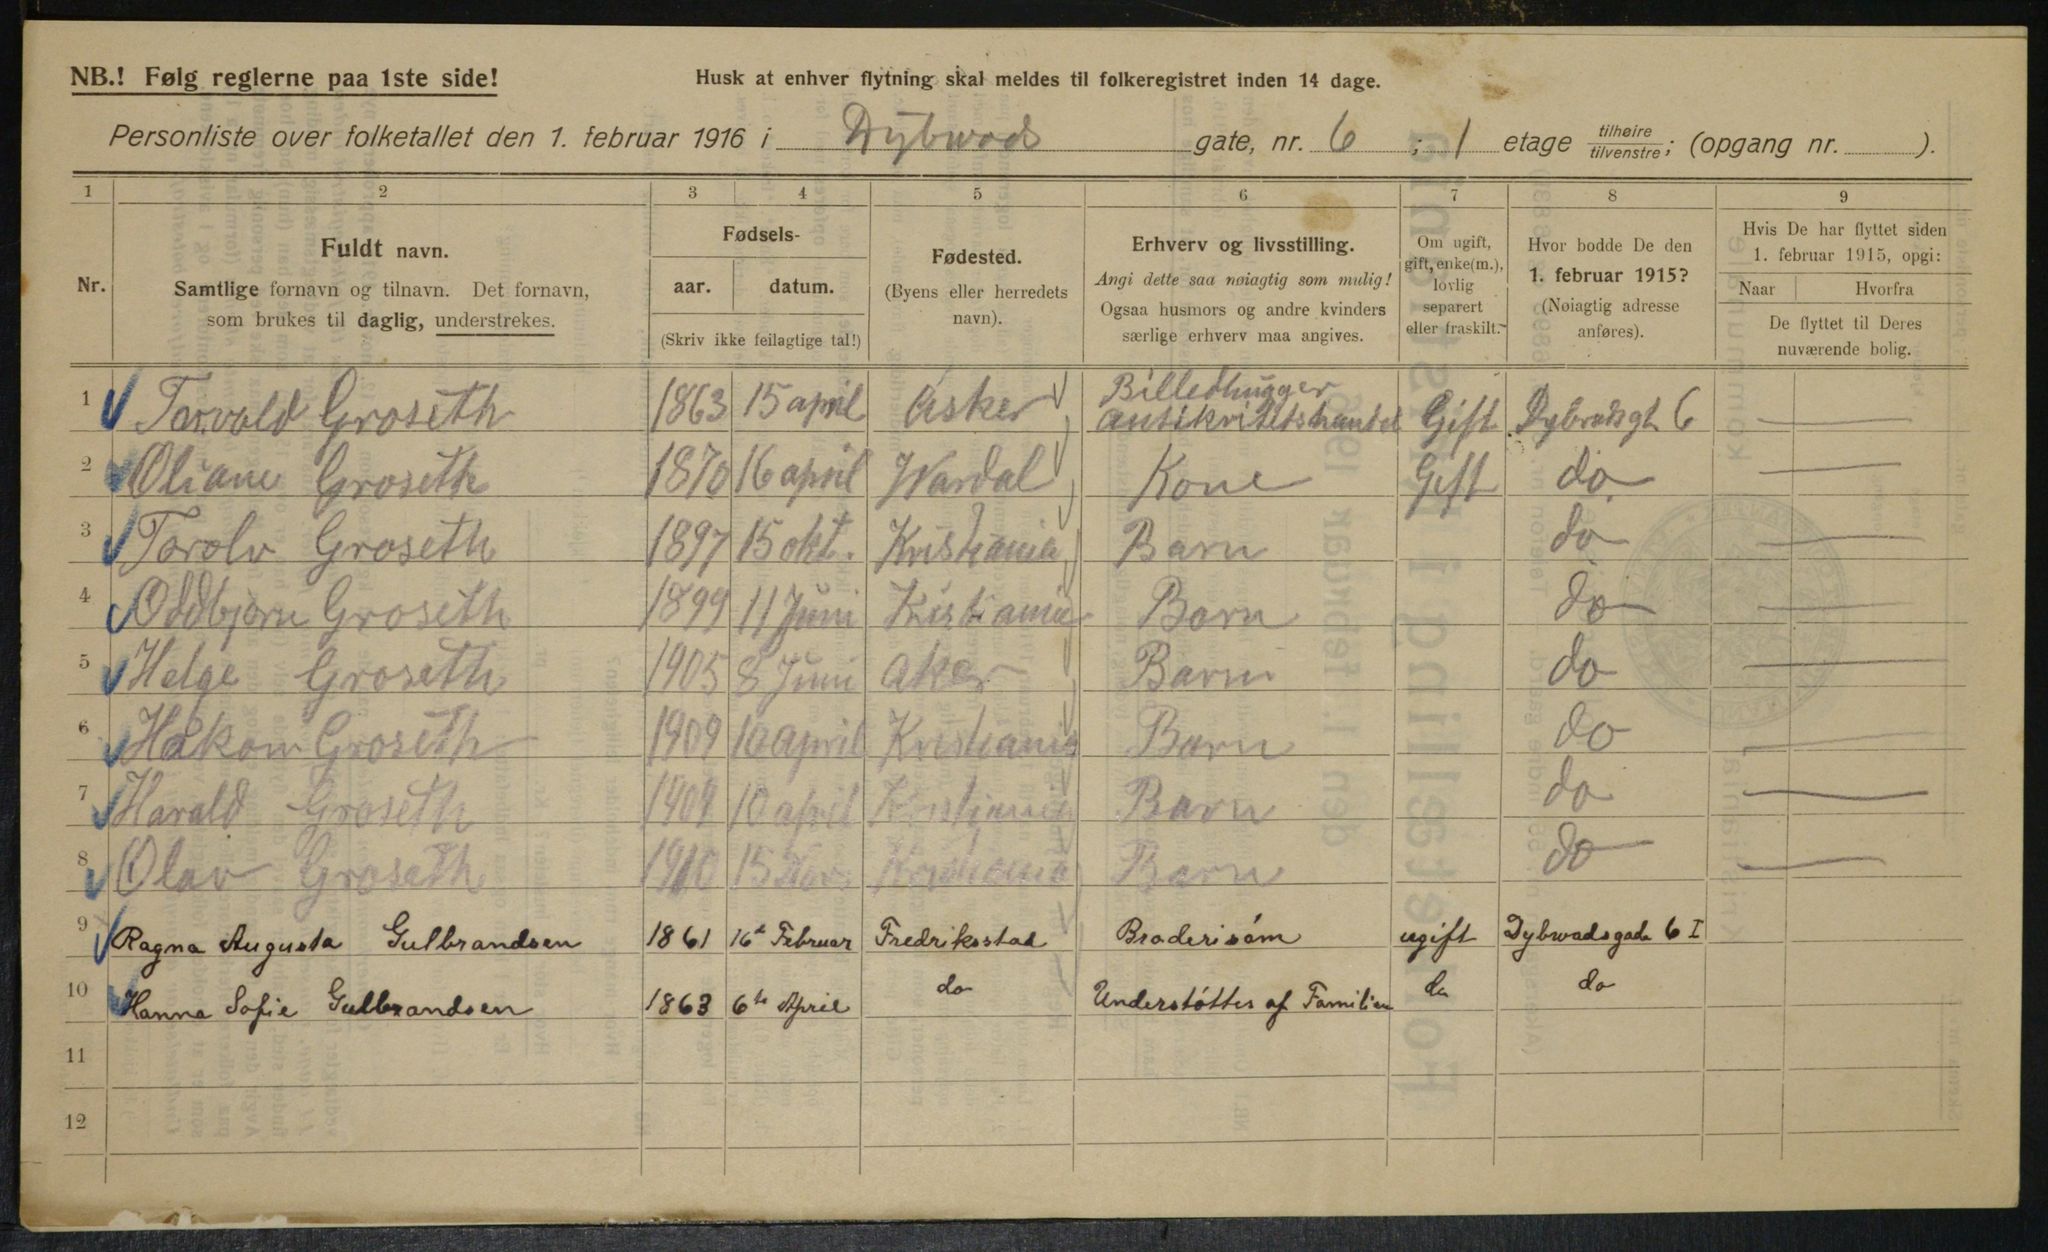 NB.! Følg reglerne paa 1ste side!
Husk at enhver flytning skal meldes til folkeregistret inden 14 dage.
Personliste over folketallet den 1. februar 1916 i Dybwads gate, nr. 6 ; 1 etage tilhøire/tilvenstre; (opgang nr. ).
1 2 3 4 5 6 7 8 9
Nr.
Fuldt navn.
Samtlige fornavn og tilnavn. Det fornavn,
som brukes til daglig, understrekes.
Fødsels-
aar. datum.
(Skriv ikke feilagtige tal!)
Fødested.
(Byens eller herredets
navn).
Erhverv og livsstilling.
Angi dette saa nøiagtig som mulig!
Ogsaa husmors og andre kvinders
særlige erhverv maa angives.
Om ugift,
gift, enke(m.),
lovlig
separert
eller fraskilt.
Hvor bodde De den
1. februar 1915?
(Nøiagtig adresse
anføres).
Hvis De har flyttet siden
1. februar 1915, opgi:
Naar Hvorfra
De flyttet til Deres
nuværende bolig.
1 Torvald Groseth 1863 15 april Asker Billedhugger Antikvitetshandel Gift Dybvadsgt 6
2 Oliane Groseth 1870 16 april Wardal Kone Gift do
3 Torolv Groseth 1897 15 okt. Kristiania Barn do
4 Oddbjørn Groseth 1899 11 Juni Kristiania Barn do
5 Helge Groseth 1905 8 Juni Aker Barn do
6 Håkon Groseth 1909 10 april Kristiania Barn do
7 Harald Groseth 1909 10 april Kristiania Barn do
8 Olav Groseth 1910 15 Nov. Kristiania Barn do
9 Ragna Augusta Gulbrandsen 1861 16de Februar Fredriksstad Broderisöm ugift Dybwadsgade 6 I
10 Hanna Sofie Gulbrandsen 1863 6te April do Understöttes af Familien do do
11
12